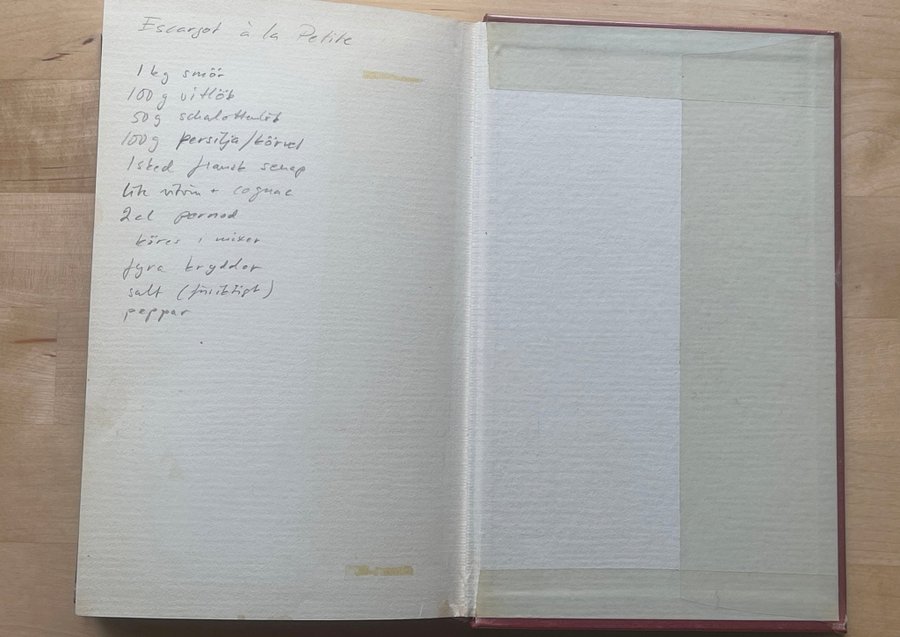 Escargot à la Petite
1 kg smör
100 g vitlök
50 g schalottenlök
100 g persilja/körvel
1 sked fransk senap
lite vitvin + cognac
2 cl pernod
köres i mixer
fyra kryddor
salt (försiktigt)
peppar